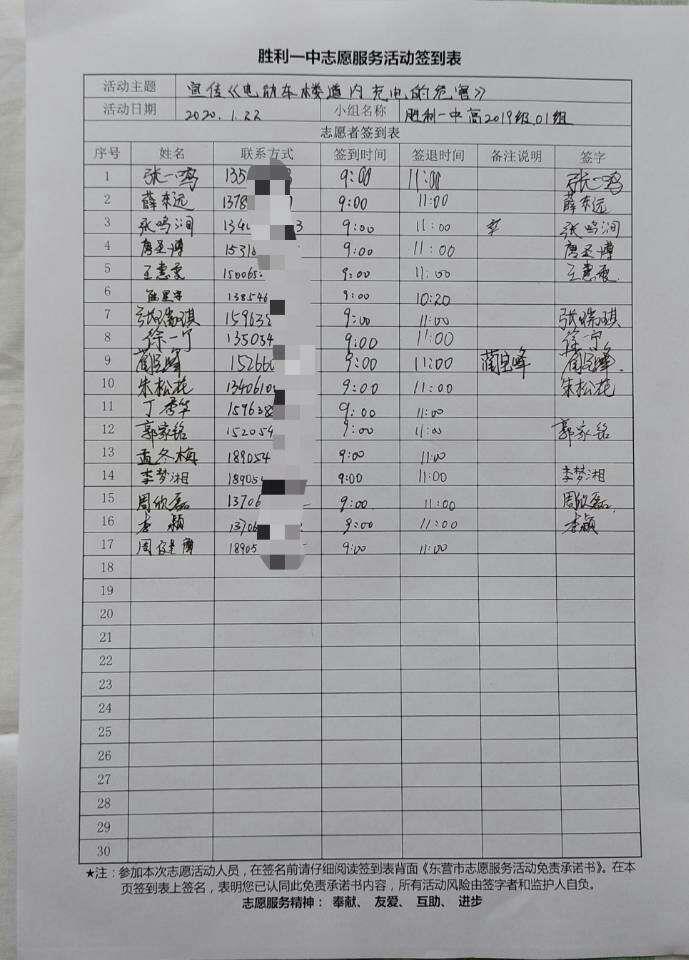 胜利一中志愿服务活动签到表
活动主题 宣传《电动车楼道内充电的危害》
活动日期 2020.1.22 小组名称 胜利一中高2019级01组
志愿者签到表
序号 姓名 联系方式 签到时间 签退时间 备注说明 签字
1 张一鸣 135 9:00 11:00 张一鸣
2 薛东远 1378 9:00 11:00 薛东远
3 张鸣润 134 3 9:00 11:00 张鸣润
4 唐圣博 1531 9:00 11:00 唐圣博
5 王惠雯 15006 9:00 11:00 王惠雯
6 138546 9:00 10:20
7 张瑞琪 159638 9:00 11:00 张瑞琪
8 徐一宁 135034 9:00 11:00 徐一宁
9 15266 9:00 11:00
10 朱松花 1340610 9:00 11:00 朱松花
11 丁秀华 159638 9:00 11:00
12 郭家铭 152054 9:00 11:00 郭家铭
13 孟冬梅 189054 9:00 11:00
14 李梦湘 189054 9:00 11:00 李梦湘
15 周欣磊 1370 9:00 11:00 周欣磊
16 李颖 13706 9:00 11:00 李颖
17 18905 9:00 11:00
18
19
20
21
22
23
24
25
26
27
28
29
30
★注：参加本次志愿活动人员，在签名前请仔细阅读签到表背面《东营市志愿服务活动免责承诺书》。在本
页签到表上签名，表明您已认同此免责承诺书内容，所有活动风险由签字者和监护人自负。
志愿服务精神：奉献、友爱、互助、进步